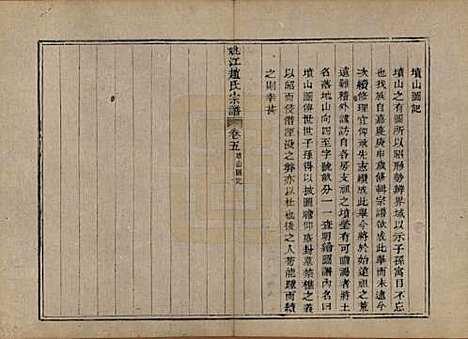 墳山圖記
墳山之有圖所以昭形勢辨界域以示子孫寓目不忘
也我族自嘉慶庚申歲修輯宗譜欲成此舉而未逮今
次續修理宜仰承先志纘成此舉今將於始遠祖之荒
遠難稽外謹訪自各房支祖之墳塋有可瞻謁者將土
名落地山向四至字號畝分一一查明繪圖譜內名曰
墳山圖傳世世子孫得以披圖瞻仰展卦墓禁樵之義
以昭而侵漸湮沒之弊亦以杜也後之人若能踵而續
之則幸甚
姚江趙氏宗譜
卷五
墳山圖記